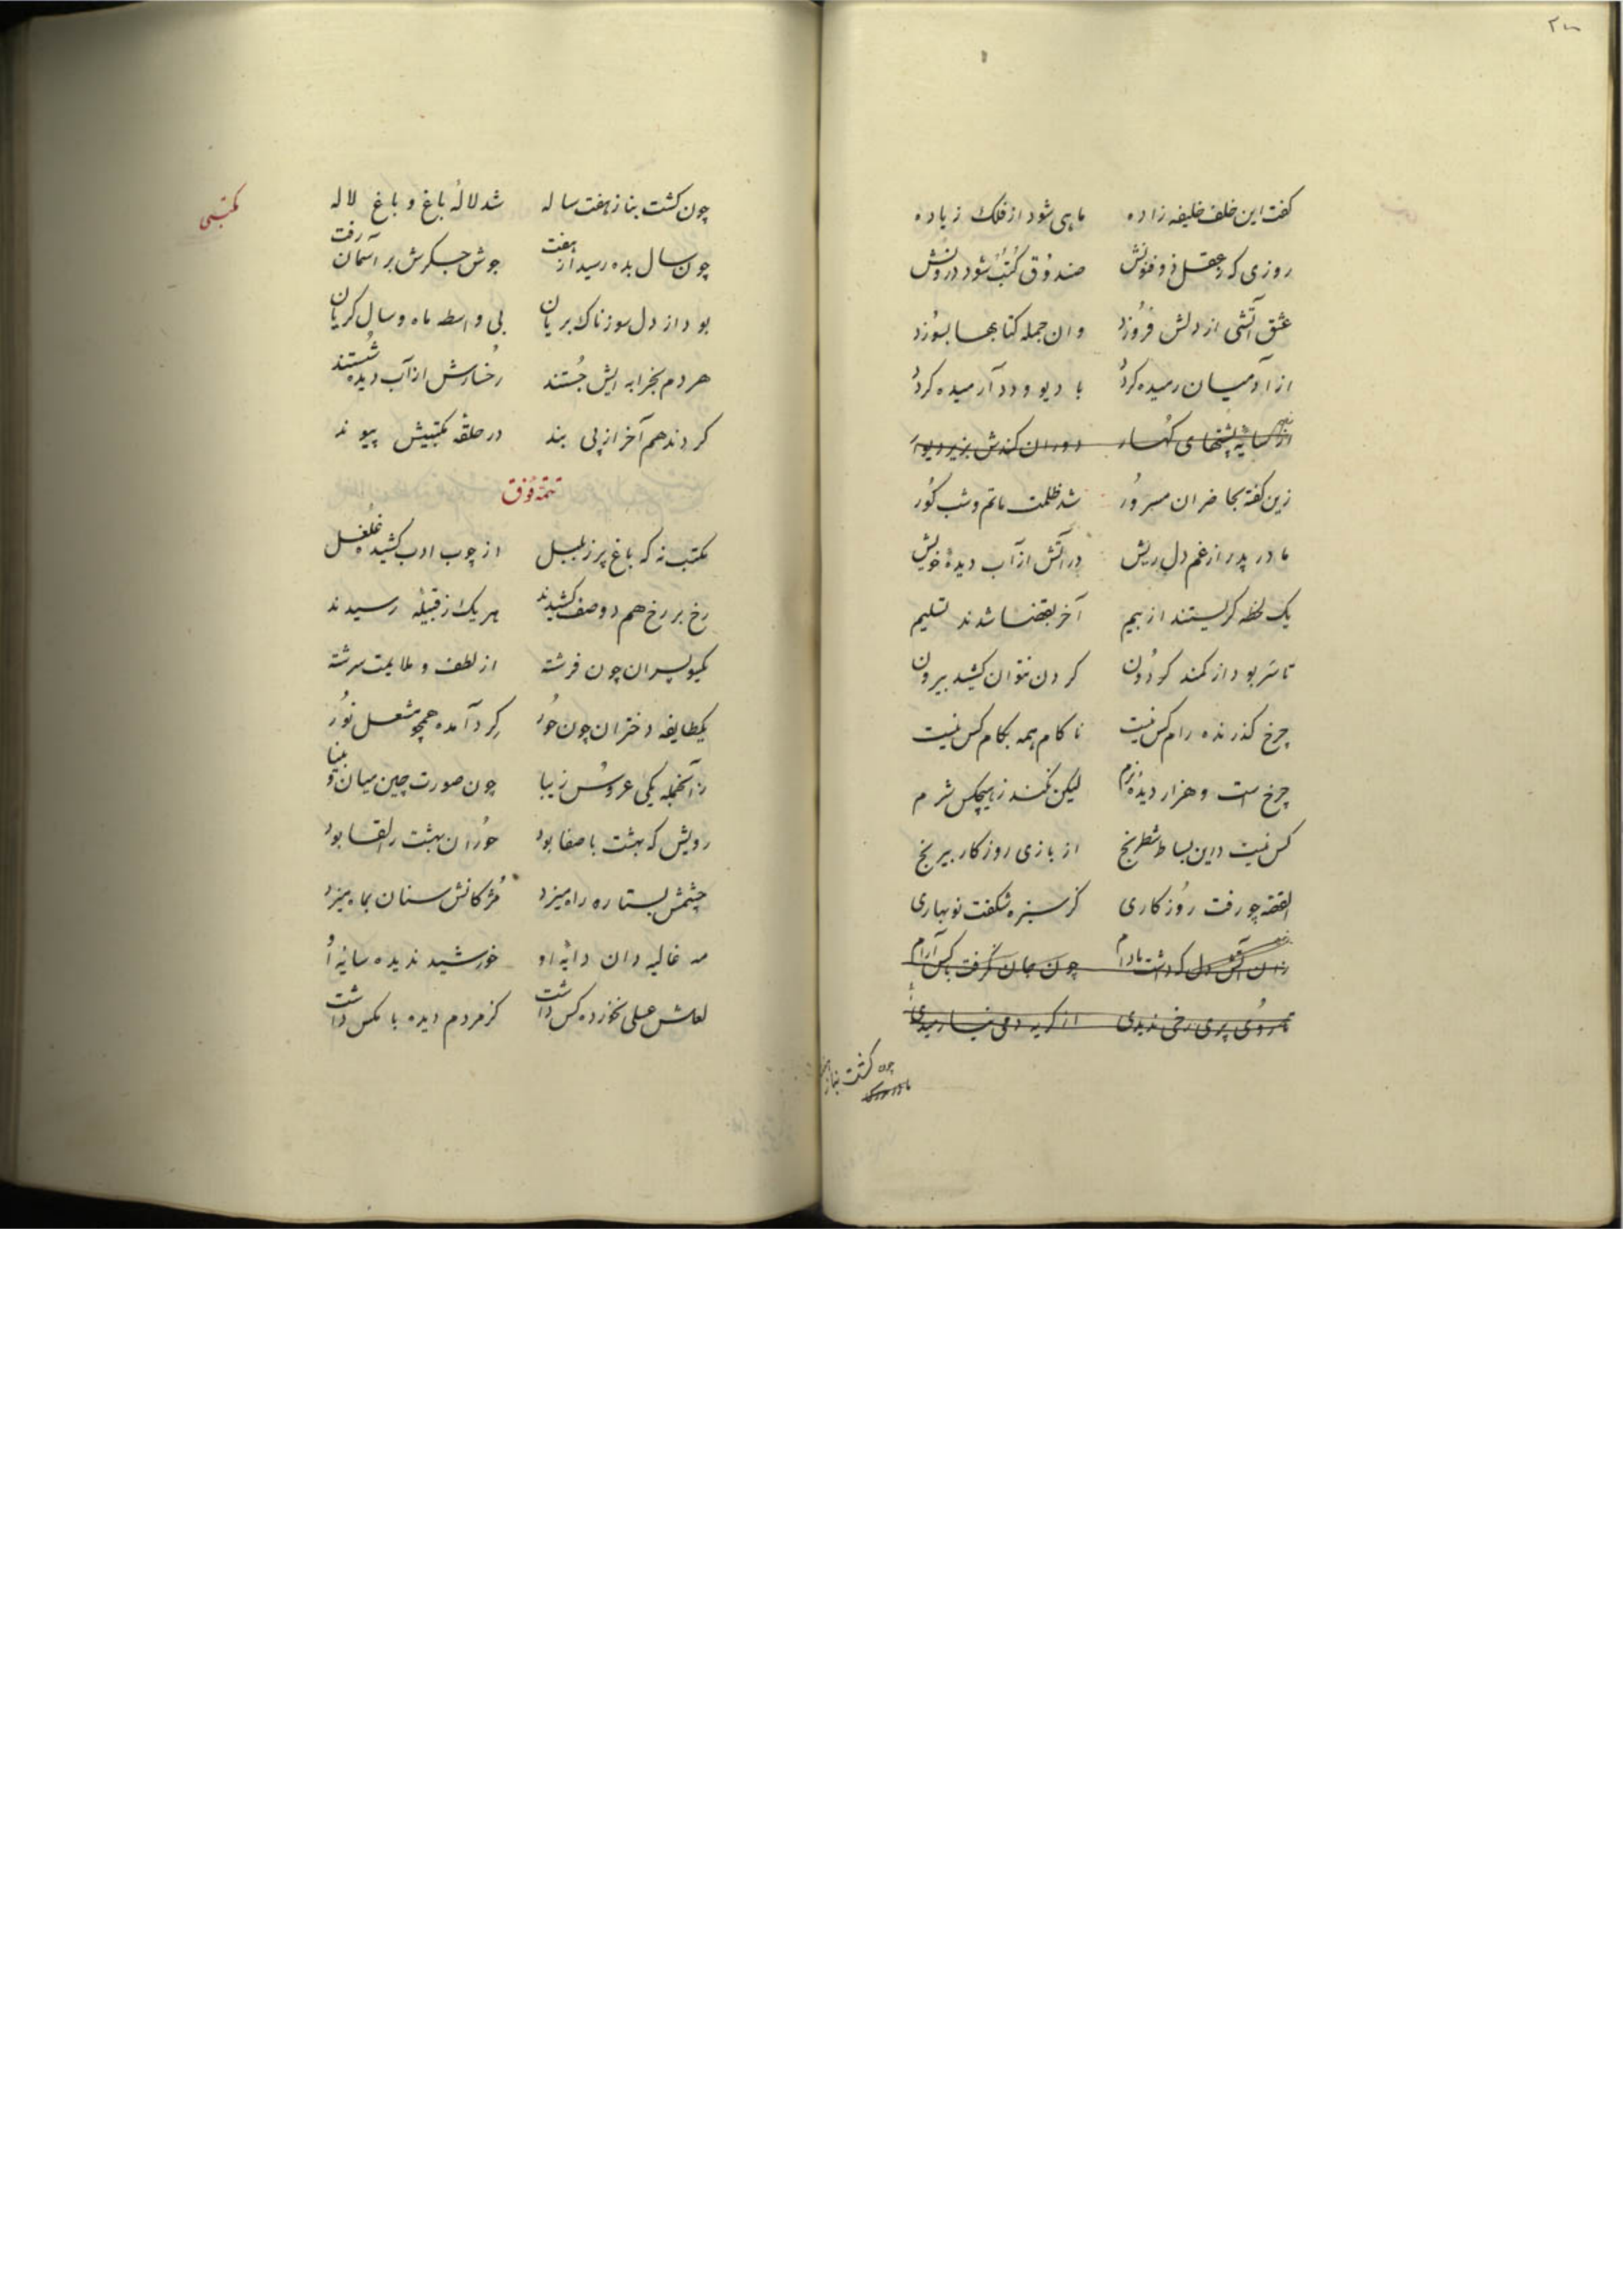 کفت این خلف خلیفه زاده ماهی شود از فلک زیاده
روزی که ز عقل ذوفنونش صندوق کتب شود درونش
عشق آتشی از دلش فروزد وان جمله کتابها بسوزد
از آدمیان رمیده کردد با دیو و دد آرمیده کردد
از سایه پشتهای کهسار دوران کندش بزیر دیوار
زین کفته بحاضران مسرور شد ظلمت ماتم و شب کور
مادر پدر از غم دل ریش در آتش از آب دیدهٔ خویش
یک لحظه کریستند از بیم آخر بقضا شدند تسلیم
تا سر بود از کمند کردون کردن نتوان کشید بیرون
چرخ کذرنده رام کس نیست ناکام همه بکام کس نیست
چرخ است و هزار دیدهٔ نرم لیکن نکند ز هیچکس شرم
کس نیست درین بساط شطرنج از بازی روزکار بیرنج
القصه چو رفت روزکاری کز سبزه شکفت نوبهاری
زان آتش دل که داشت مادام چون جان نکرفت با کس آرام
تا روی پری رخی ندیدی از کریه دمی نیارمیدی
چون کشت بناز
چون کشت بناز هفت ساله شد لالهٔ باغ و باغ لاله
چون سال بده رسید از هفت جوش جکرش بر آسمان رفت
بود از دل سوزناک بریان بی واسطه ماه و سال کریان
هر دم بخرابه ایش جستند رخسارش از آب دیده شستند
کردند هم آخر از پی بند در حلقه مکتبیش پیوند
مکتبی
تتمه فوق
مکتب نه که باغ پر ز بلبل از چوب ادب کشیده غلغل
رخ بر رخ هم دو صف کشیدند هر یک ز قبیله رسیدند
یکسو پسران چون فرشته از لطف و ملایمت سرشته
یکطایفه دختران چون حور کرد آمده همچو مشعل نور
زآنجمله یکی عروس زیبا چون صورت چین میان دیبا
رویش که بهشت با صفا بود حوران بهشت را لقا بود
چشمش بستاره راه میزد مژکانش سنان بماه میزد
مه غالیه دان دایهٔ او خورشید ندیده سایهٔ او
لعلش عسلی نخورده کس داشت کز مردم دیده با مکس داشت